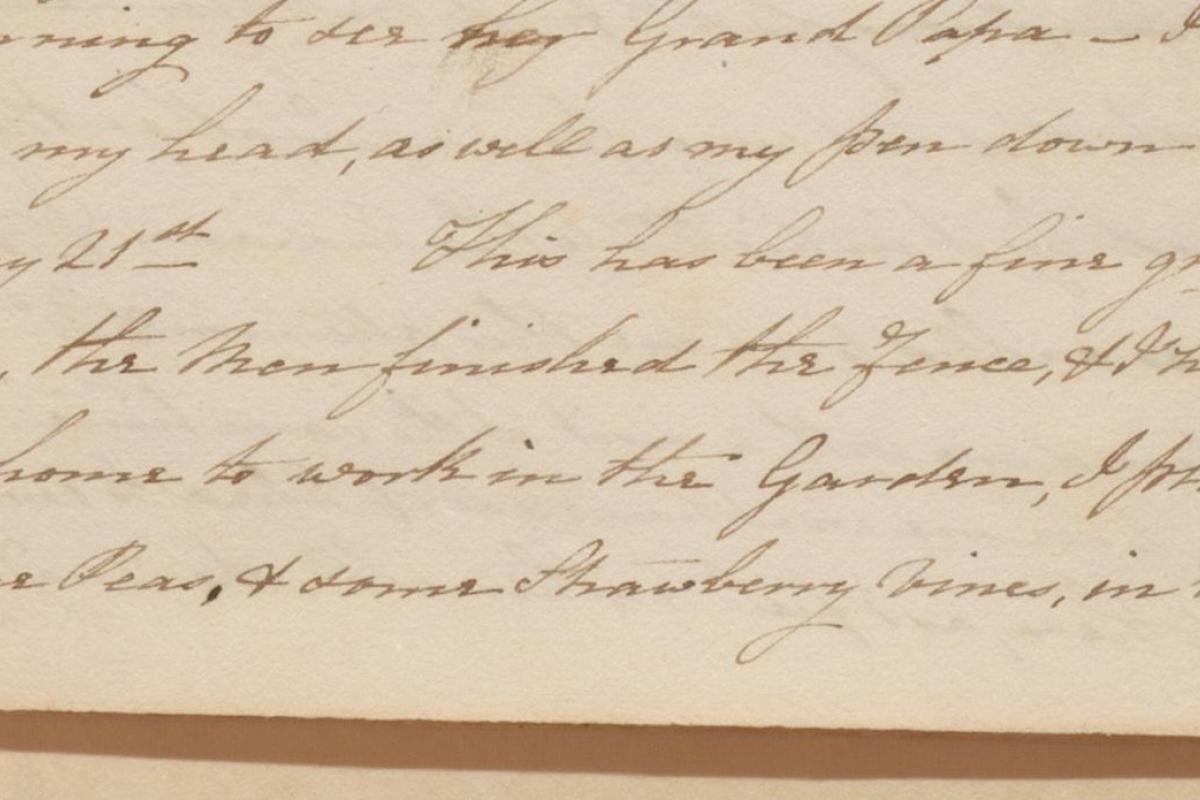 to see her Grand Papa –
my head, as well as my pen down
21st This has been a fine
, the Men finished the Fence, & I
home to work in the Garden, I
Peas, & some Strawberry Vines, in